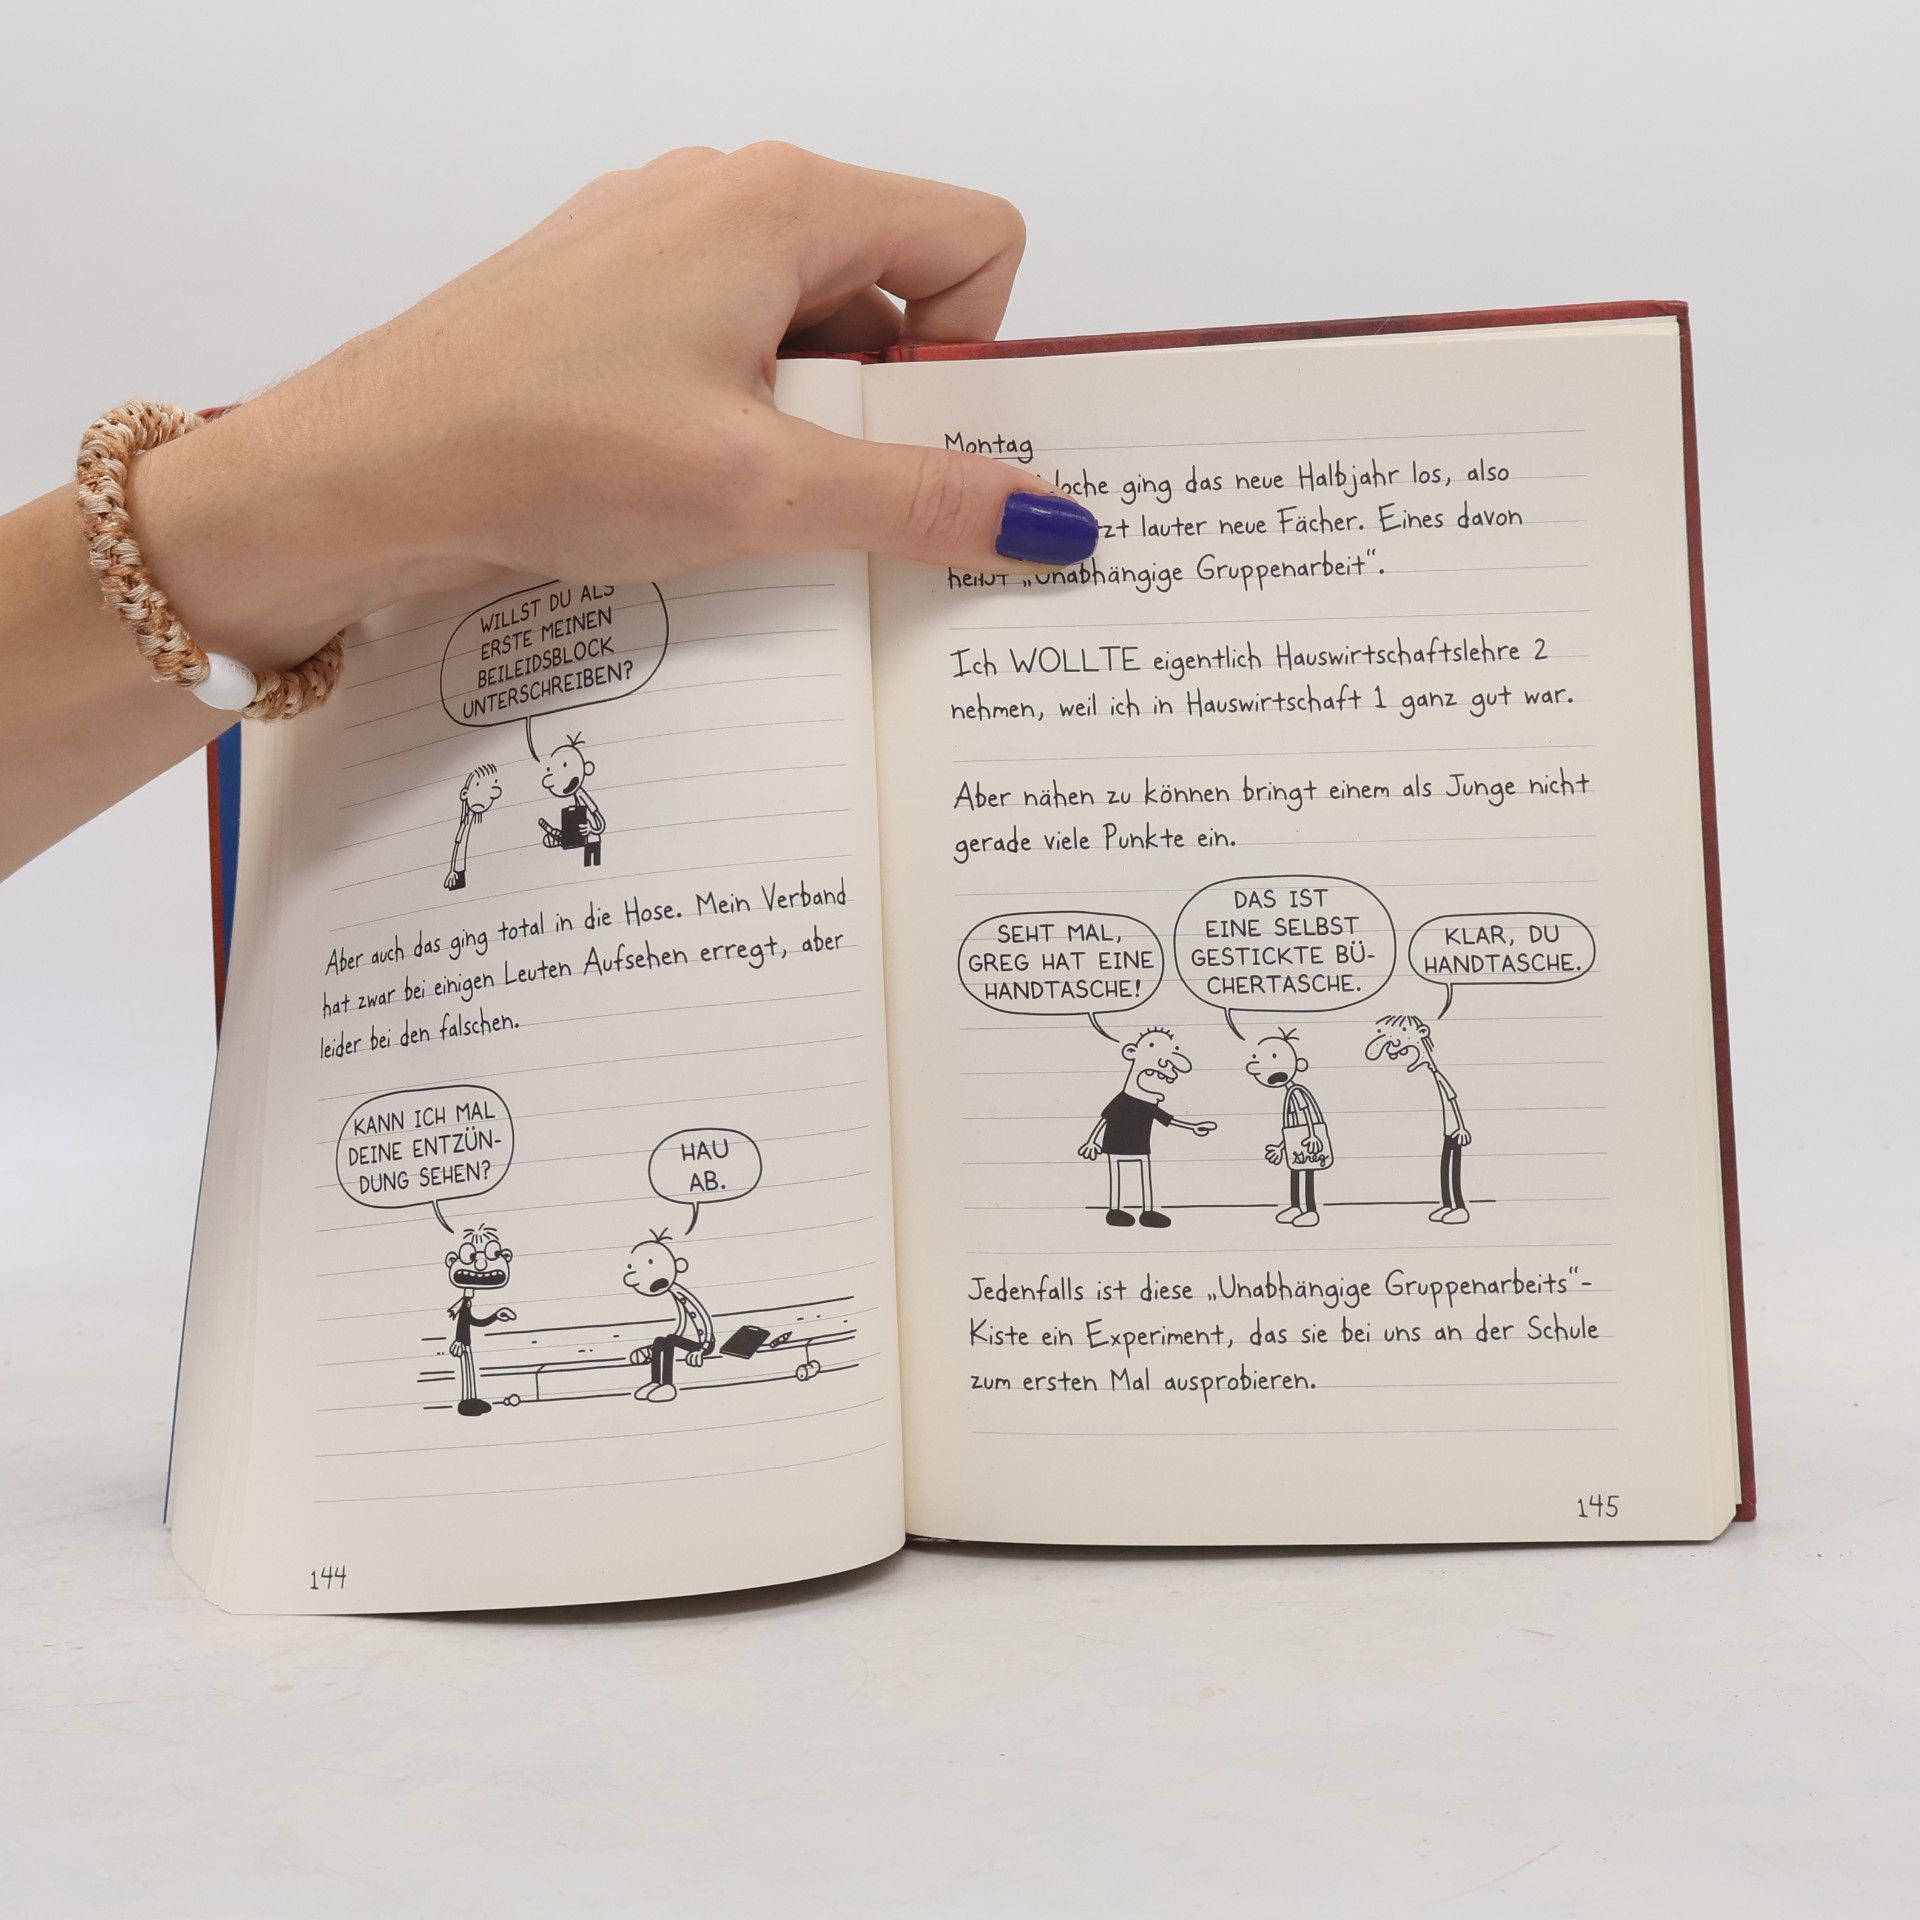 WILLST DU ALS
ERSTE MEINEN
BEILEIDSBLOCK
UNTERSCHREIBEN?
Aber auch das ging total in die Hose. Mein Verband
hat zwar bei einigen Leuten Aufsehen erregt, aber
leider bei den falschen.
KANN ICH MAL
DEINE ENTZÜN-
DUNG SEHEN?
HAU
AB.
144
Montag
ging das neue Halbjahr los, also
lauter neue Fächer. Eines davon
heißt „Unabhängige Gruppenarbeit“.
Ich WOLLTE eigentlich Hauswirtschaftslehre 2
nehmen, weil ich in Hauswirtschaft 1 ganz gut war.
Aber nähen zu können bringt einem als Junge nicht
gerade viele Punkte ein.
SEHT MAL,
GREG HAT EINE
HANDTASCHE!
DAS IST
EINE SELBST
GESTICKTE BÜ-
CHERTASCHE.
KLAR, DU
HANDTASCHE.
Greg
Jedenfalls ist diese „Unabhängige Gruppenarbeits“-
Kiste ein Experiment, das sie bei uns an der Schule
zum ersten Mal ausprobieren.
145